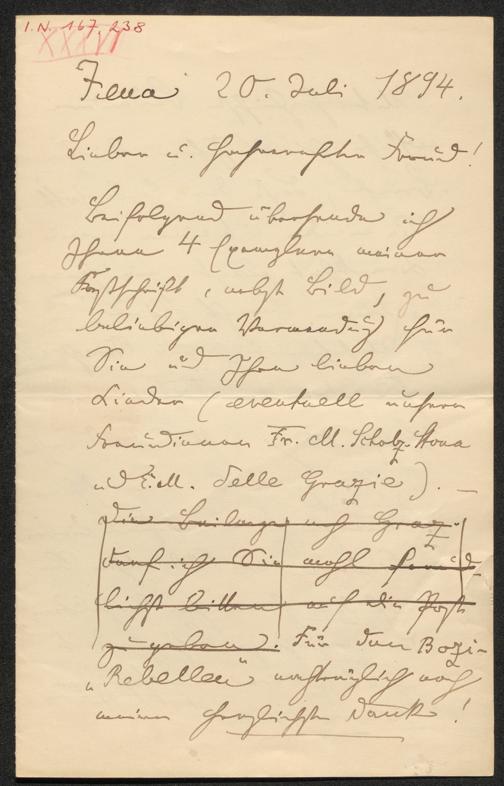 I.N. 167.238
XXXVI
Jena 20. Juli 1894.
Lieber u. hochverehrter Freund!
Beifolgend übersende ich
Ihnen 4 Exemplare meiner
Festschrift, nebst Bild, zu
beliebigen Verwendung für
Sie und Ihre lieben
Kinder (eventuell unsern
Freundinnen Fr. M. Scholz-Nona
und E. M. delle Grazie). —
Die Beilage nach Graz
darf ich Sie wohl freund-
lichst bitten auf die Post
zu geben. Für den
„Rebellen" nachträglich noch
meinen herzlichsten Dank!